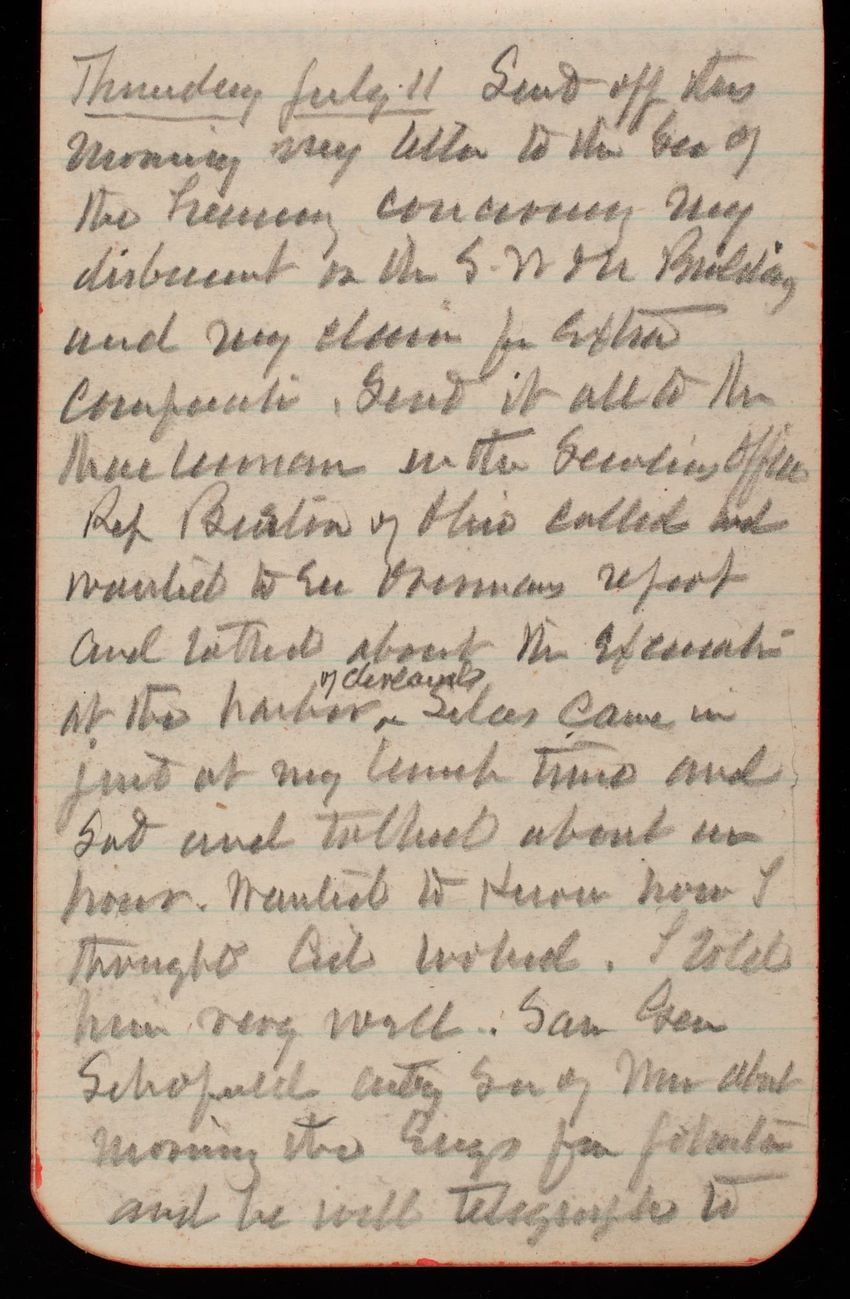 Thursday July 11 Send off this
morning my letter to the Sec of
the Treasury concerning my
disbursment on the S. W & N Building
and my claim for Extra
Compensati. Send it all to
in the Secretarys Office
Rep Burton of Ohio called and
wanted to see report
and talked about the
at the harbor of Cleveland
came in
just at my lunch time and
Sat and talked about an
hour. Wanted to know how I
thought worked. I told
him very well. Saw Gen
Schofield acting Sec of War about
moving the Engs from
and he will telegraph to